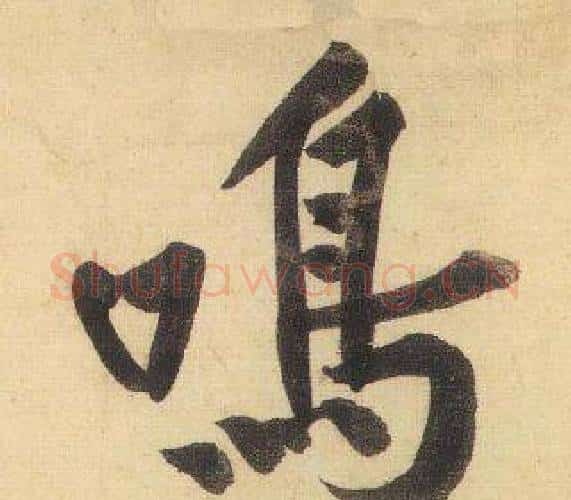 鳴
Shufawang.CN